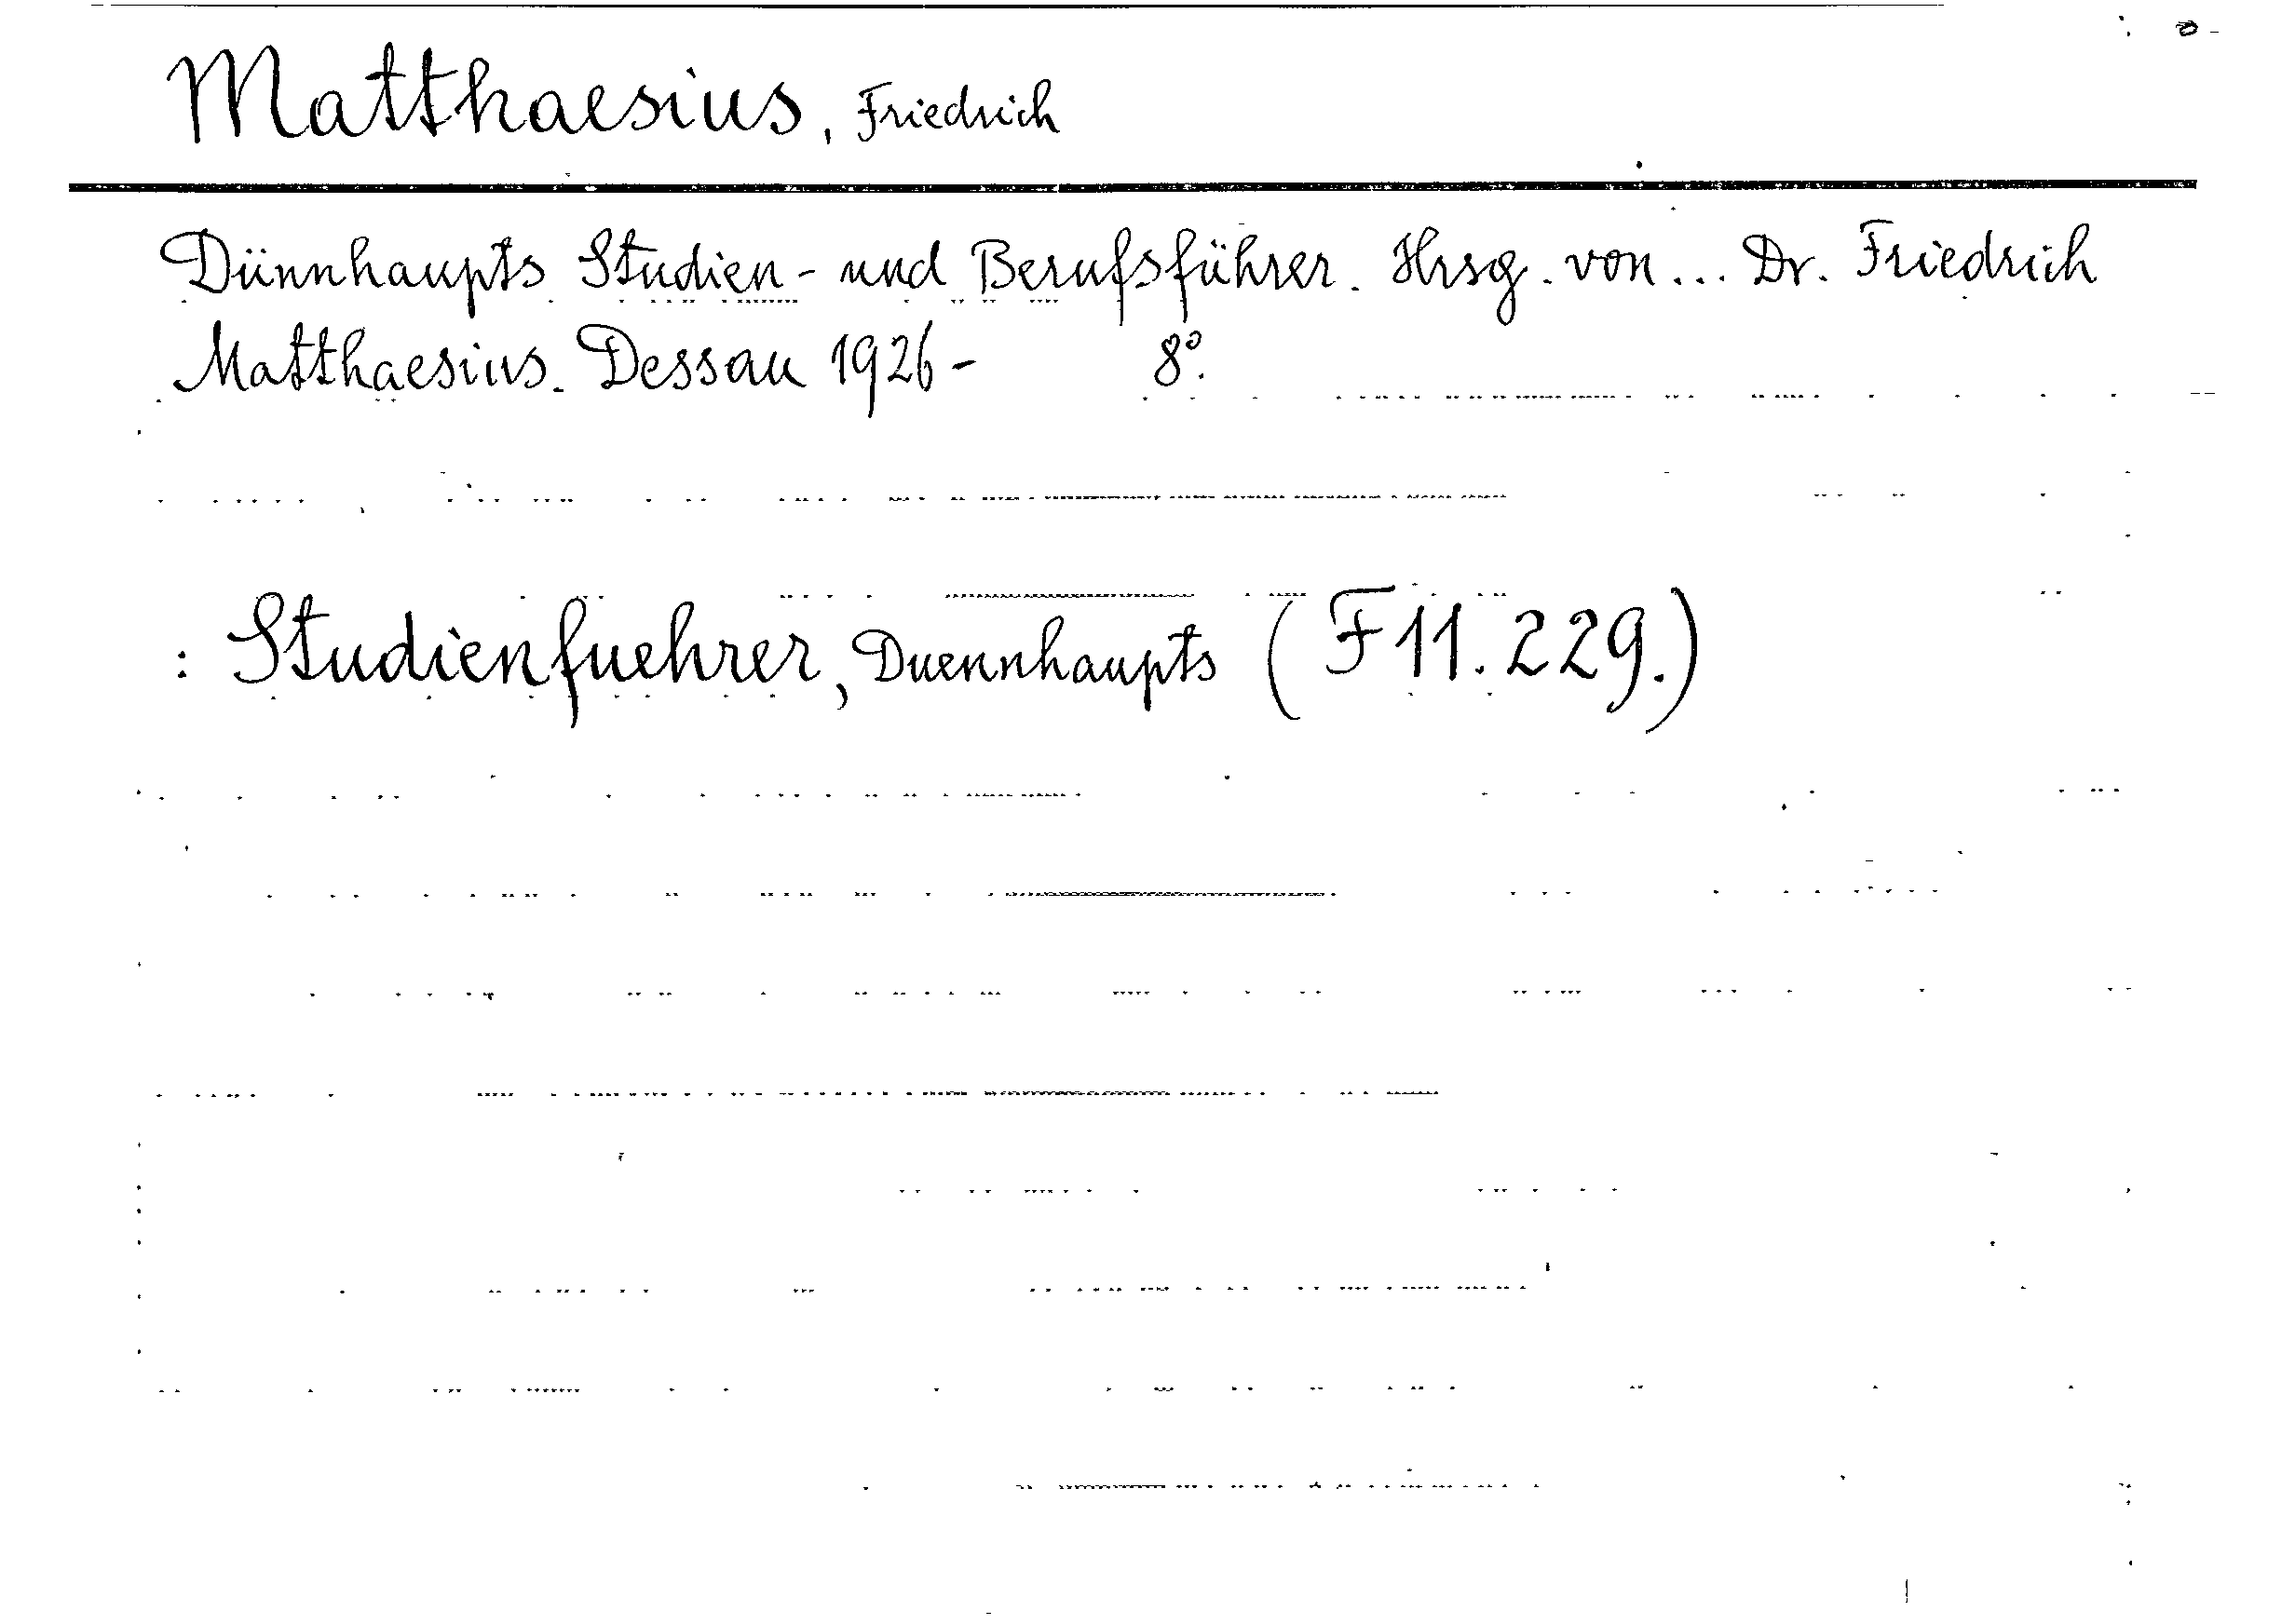 Matthaesius, Friedrich
Dünnhaupts Studien- und Berufsführer. Hrsg. von... Dr. Friedrich
Matthaesius. Dessau 1926- 8°.
: Studienfuehrer, Duennhaupts (F 11. 229.)